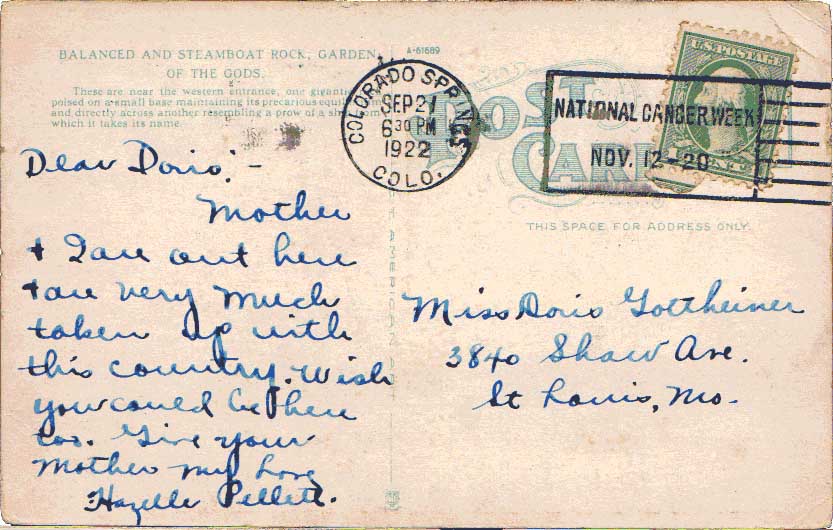 BALANCED AND STEAMBOAT ROCK, GARDEN
OF THE GODS.
These are near the western entrance, one gigantic
poised on a small base maintaining its precarious
and directly across another resembling a prow of a
which it takes its name.
Dear Doris:-
Mother
+ I are out here
+ are very much
taken up with
this country. Wish
you could be here
too. Give your
Mother my love
Hazelle Pellett.
A-61689
COLORADO SPRINGS
SEP 21
6 30 PM
1922
COLO.
POST
CARD
NATIONAL CANCER WEEK
NOV. 12-20
U.S. POSTAGE
1 CENT
THIS SPACE FOR ADDRESS ONLY.
Miss Doris Gottheimer
3840 Shaw Ave.
St Louis, Mo.